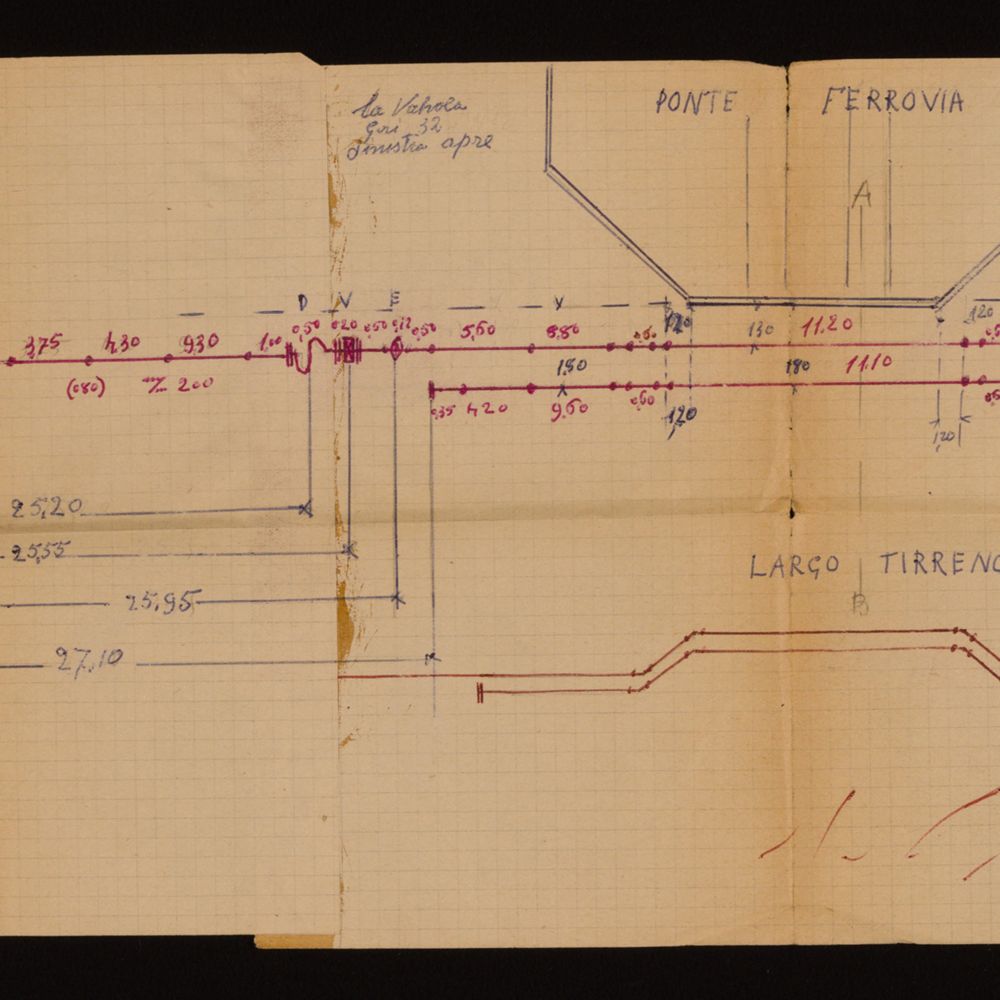 la Valvola
Giri 32
Sinistra apre
PONTE FERROVIA
A
D V F
120
120
3,75 4,30 9,30 1,00 0,50 0,20 0,50 0,12 0,50 5,60 9,80 130 11.20
(080) 200
150 180 11.10
0,35 4,20 9,60 0,60 1,20
1,20
25,20
25,55
25,95
27,10
LARGO TIRRENO
B